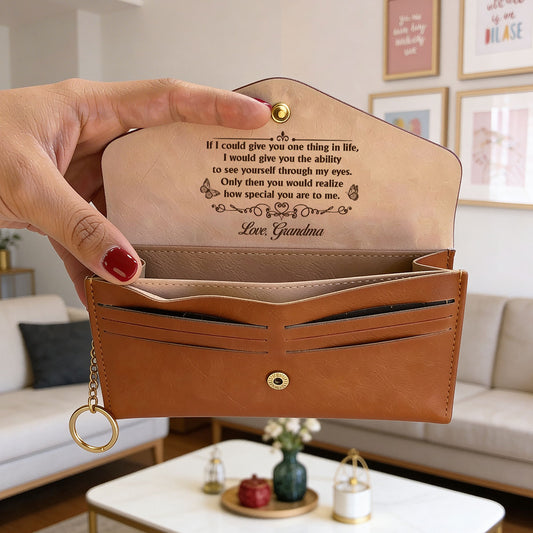 If I could give you one thing in life,
I would give you the ability
to see yourself through my eyes.
Only then you would realize
how special you are to me.
Love, Grandma